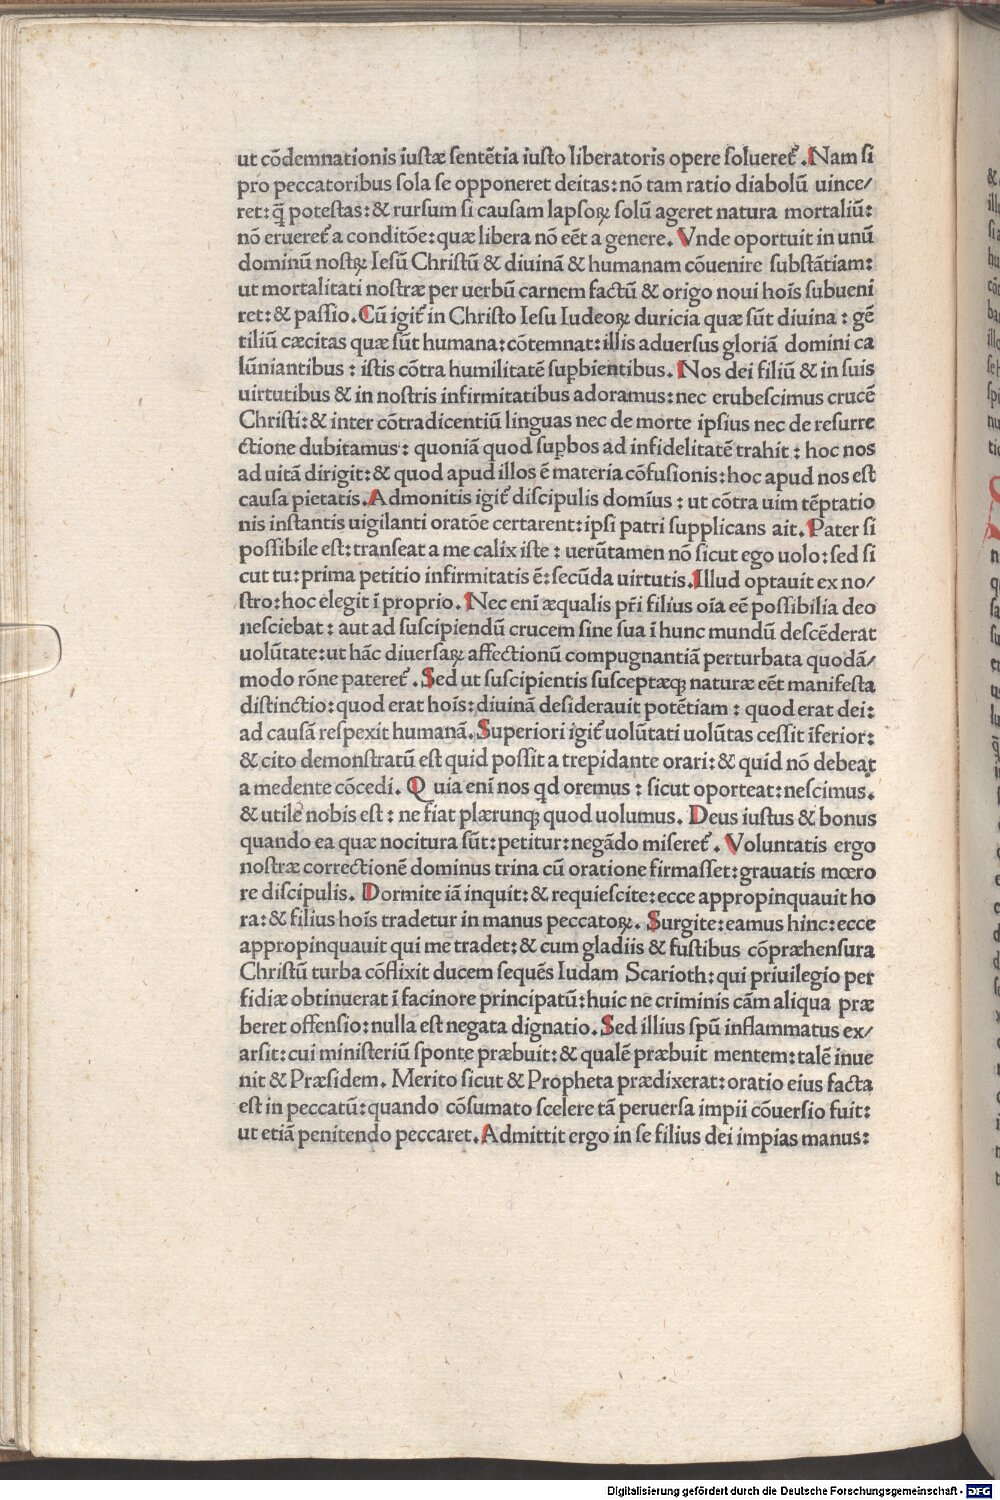 ut cōdemnationis iustæ sentētia iusto liberatoris opere solueret᷑. Nam si
pro peccatoribus sola se opponeret deitas: nō tam ratio diabolū uince/
ret: q̄ potestas: & rursum si causam lapsoꝝ solū ageret natura mortaliū:
nō erueret᷑ a conditōe: quæ libera nō eēt a genere. Vnde oportuit in unū
dominū nostꝝ Iesū Christū & diuinā & humanam cōuenire substātiam:
ut mortalitati nostræ per uerbū carnem factū & origo noui hoīs subueni
ret: & passio. Cū igit᷑ in Christo Iesu Iudeoꝝ duricia quæ sūt diuina: gē
tiliū cæcitas quæ sūt humana: cōtemnat: illis aduersus gloriā domini ca
lūniantibus: istis cōtra humilitatē suꝑbientibus. Nos dei filiū & in suis
uirtutibus & in nostris infirmitatibus adoramus: nec erubescimus crucē
Christi: & inter cōtradicentiū linguas nec de morte ipsius nec de resurre
ctione dubitamus: quoniā quod suꝑbos ad infidelitatē trahit: hoc nos
ad uitā dirigit: & quod apud illos ē materia cōfusionis: hoc apud nos est
causa pietatis. Admonitis igit᷑ discipulis domīus: ut cōtra uim tēptatio
nis instantis uigilanti oratōe certarent: ipsi patri supplicans ait. Pater si
possibile est: transeat a me calix iste: uerūtamen nō sicut ego uolo: sed si
cut tu: prima petitio infirmitatis ē: secūda uirtutis. Illud optauit ex no/
stro: hoc elegit ī proprio. Nec eni æqualis pr̄i filius oīa eē possibilia deo
nesciebat: aut ad suscipiendū crucem sine sua ī hunc mundū descēderat
uolūtate: ut hāc diuersaꝝ affectionū compugnantiā perturbata quodā/
modo rōne pateret᷑. Sed ut suscipientis susceptæqꝫ naturæ eēt manifesta
distinctio: quod erat hoīs: diuinā desiderauit potētiam: quod erat dei:
ad causā respexit humanā. Superiori igit᷑ uolūtati uolūtas cessit īferior:
& cito demonstratū est quid possit a trepidante orari: & quid nō debeat
a medente cōcedi. Quia eni nos qd oremus: sicut oporteat: nescimus.
& utile nobis est: ne fiat plærunqꝫ quod uolumus. Deus iustus & bonus
quando ea quæ nocitura sūt: petitur: negādo miseret᷑. Voluntatis ergo
nostræ correctionē dominus trina cū oratione firmasset: grauatis mœro
re discipulis. Dormite iā inquit: & requiescite: ecce appropinquauit ho
ra: & filius hoīs tradetur in manus peccatoꝝ. Surgite: eamus hinc: ecce
appropinquauit qui me tradet: & cum gladiis & fustibus cōpræhensura
Christū turba cōflixit ducem sequēs Iudam Scarioth: qui priuilegio per
fidiæ obtinuerat ī facinore principatū: huic ne criminis cām aliqua præ
beret offensio: nulla est negata dignatio. Sed illius spū inflammatus ex/
arsit: cui ministeriū sponte præbuit: & qualē præbuit mentem: talē inue
nit & Præsidem. Merito sicut & Propheta prædixerat: oratio eius facta
est in peccatū: quando cōsumato scelere tā peruersa impii cōuersio fuit:
ut etiā penitendo peccaret. Admittit ergo in se filius dei impias manus:
Digitalisierung gefördert durch die Deutsche Forschungsgemeinschaft - DFG